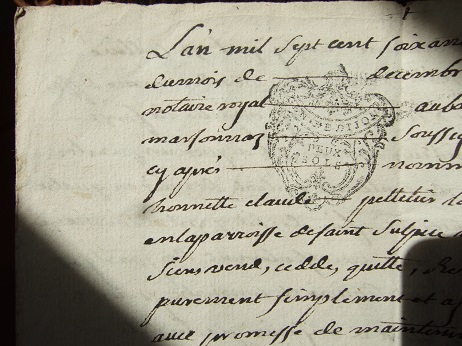 L'an mil sept cent soixan
du mois de decembre
notaire royal au ba
marsonnaz Soussi
cy après nomm
honnette claude pelletier la
en la parroisse de saint Sulpice
Siens vend, cedde, quitte,
purement Simplement et a
avec promesse de mainteni
DEUX
SOLS